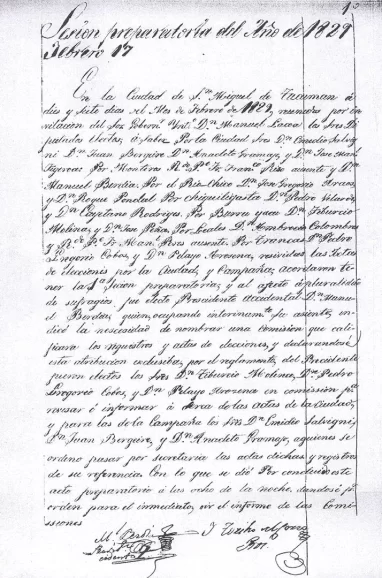 1º
Sesión preparatoria del Año de 1829
Febrero 17
En la Ciudad de Sn. Miguel de Tucuman á
dies y siete dias del Mes de Febrero de 1829, reunidos por
vitacion del Sor. Gobernr. Dn. Manuel Lacoa los Sres Di
putados electos, á saber Por la Ciudad Sres Dn. Emidio Salvig
ni Dn. Juan Bergeire Dn. Anacleto Gramajo, y Dn. Jose Man.
Figueroa Por Monteros R. P. Fr. Franco. Riso ausente y Dn.
Manuel Berdia, Por el Rio-Chico Dn. Jose Gregorio Araoz,
y Dn. Roque Pondal Por Chiquiligasta Dn. Pedro Velarde,
y Dn. Cayetano Rodrigues, Por Burru yacu Dn. Tiburcio
Molina, y Dn. Jose Peña, Por Leales Dn. Ambrocio Colombres
y R. P. Fr. Man. Peres ausente, Por Trancas Dn. Pedro
Gregorio Cobos, y Dn. Pelayo Arosena, resividas las actas
de elecciones por la Ciudad, y Campaña; acordaron te
ner la 1ª Junta preparatoria; y al efecto á pluralidad
de sufragios fue electo Presidente accidental Dn. Manu
el Berdia, quien, ocupando interinamte. su asiento, in
dicó la necesidad de nombrar una comision que cali
ficara los registros y actas de elecciones, y declarandose
esta atribucion exclusiba, por el reglamento, del Precidente
fueron electos los Sres Dn. Tiburcio Molina, Dn. Pedro
Gregorio Cobos, y Dn. Pelayo Arozena en comission pa.
revisar é informar á serca de las actas de la Ciudad,
y para las de la Campaña los Sres Dn. Emidio Salvigni,
Dn. Juan Bergeire, y Dn. Anacleto Gramajo, aquienes se
ordeno pasar por secretaria las actas dichas y registros
de su referencia Con lo que se dió Por concluido este
acto preparatorio á las ocho de la noche, dandose pr.
orden para el inmediato, oir el informe de las Comi
ssiones
Ml. Berdia